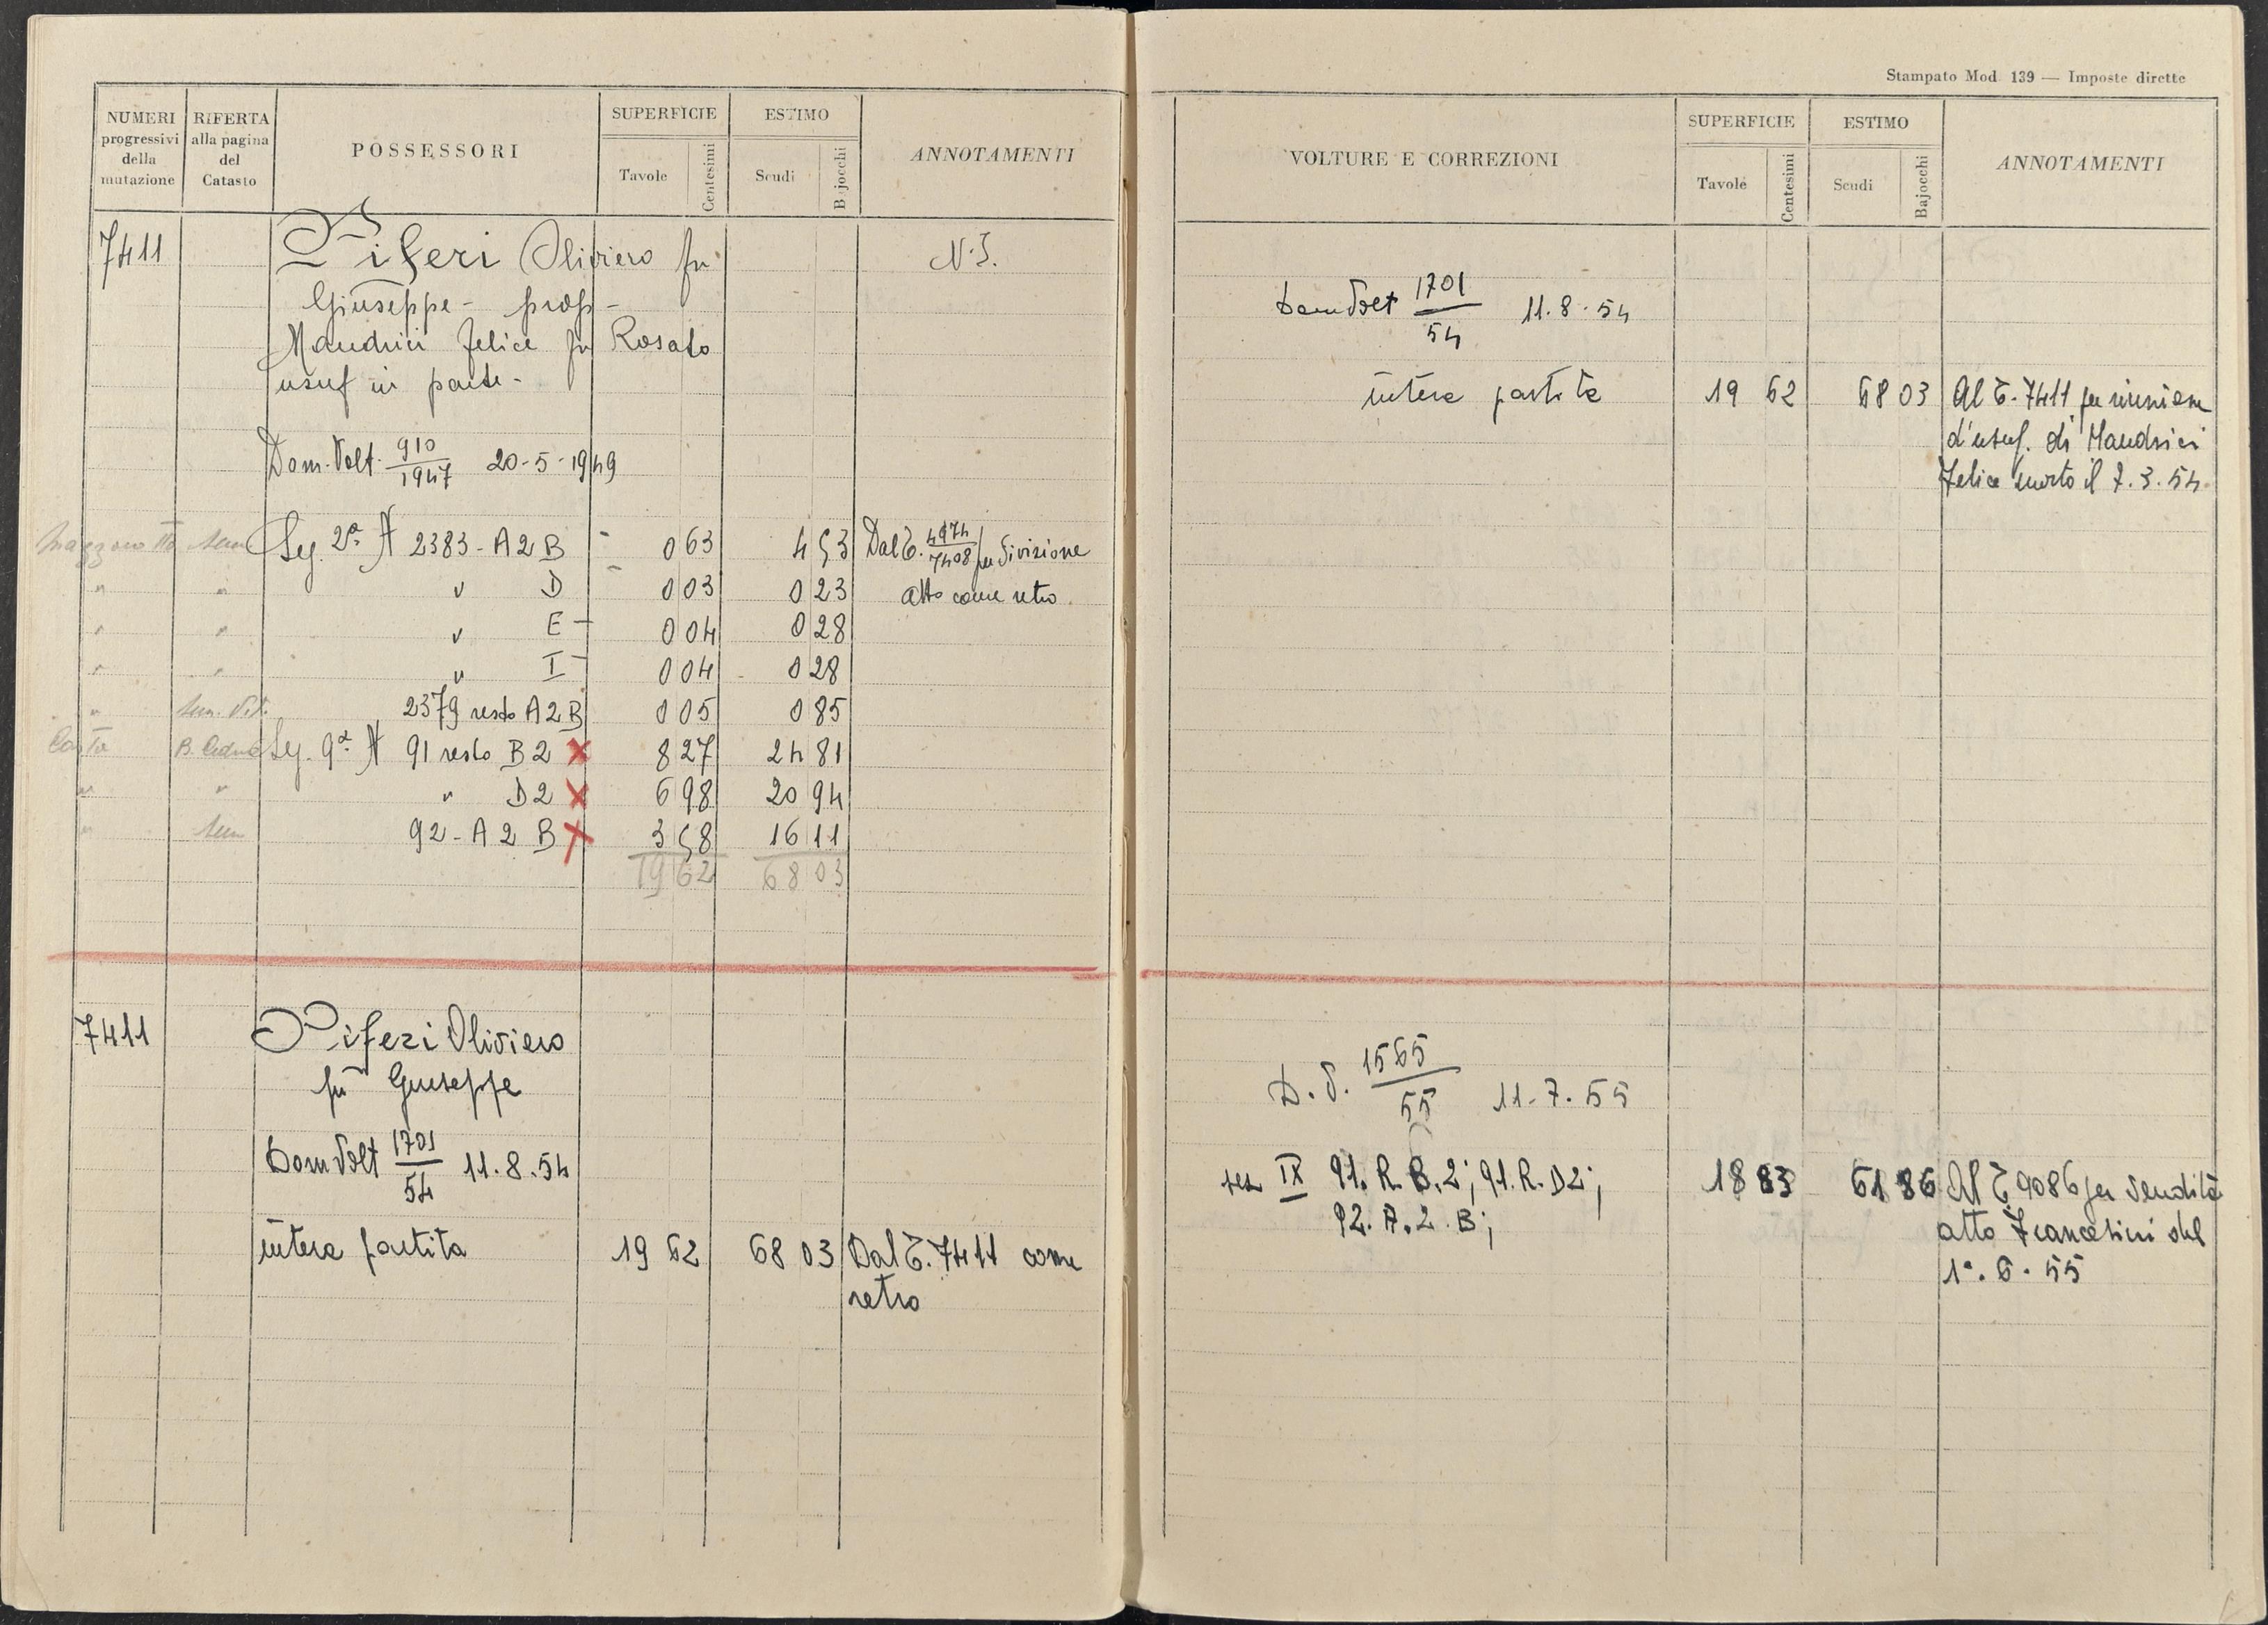 NUMERI progressivi della mutazione
RIFERTA alla pagina del Catasto
POSSESSORI
SUPERFICIE
Tavole Centesimi
ESTIMO
Scudi Bajocchi
ANNOTAMENTI
7411 Piferi Oliviero fu N.I.
Giuseppe - prop -
Mandrici Felice fu Rosato
usuf in parte -
Dom. Volt. 910/1947 20-5-1949
Sem Seg. 2ª N 2383 - A 2 B - 0 63 4 53 Dal C. 4974/7408 per divisione
" " " D - 0 03 0 23 atto come retro
" " " E - 0 04 0 28
" " " I - 0 04 0 28
" Sem. Vit. 2379 resto A 2 B 0 05 0 85
Costa B. Ceduo Seg. 9ª N 91 resto B 2 X 8 27 24 81
" " " D 2 X 6 98 20 94
" Sem 92 - A 2 B X 3 58 16 11
19 62 68 03
7411 Piferi Oliviero
fu Giuseppe
Dom Volt 1701/54 11.8.54
intera partita 19 62 68 03 Dal C. 7411 come
retro
Stampato Mod. 139 — Imposte dirette
VOLTURE E CORREZIONI
SUPERFICIE
Tavole Centesimi
ESTIMO
Scudi Bajocchi
ANNOTAMENTI
Dom Volt 1701/54 11.8.54
intera partita 19 62 68 03 Al C. 7411 per riunione
d'usuf. di Mandrici
Felice morto il 7.3.54
D. V. 1565/55 11.7.55
sez IX 91. R. B. 2; 91. R. D2; 18 83 61 86 Al C. 9086 per vendita
92. A. 2. B; atto Francesini del
1°. 6. 55